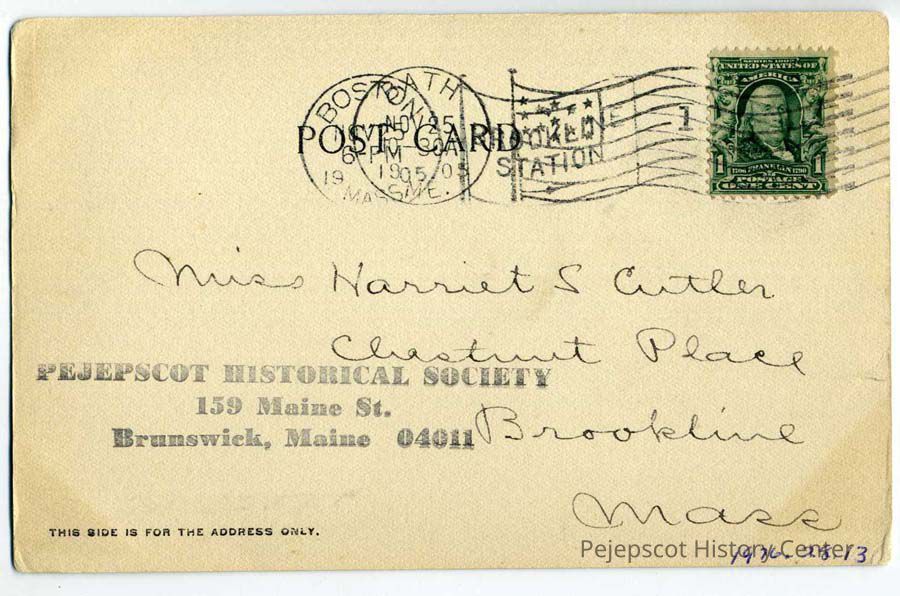 POST CARD
BOSTON
MASS
BATH
NOV 25
1905
ME.
6 PM
STATION
1
SERIES 1902
UNITED STATES OF
AMERICA
1706 FRANKLIN 1790
POSTAGE
ONE CENT
Miss Harriet S Cutler
Chestnut Place
Brookline
Mass
PEJEPSCOT HISTORICAL SOCIETY
159 Maine St.
Brunswick, Maine 04011
THIS SIDE IS FOR THE ADDRESS ONLY.
Pejepscot History Center